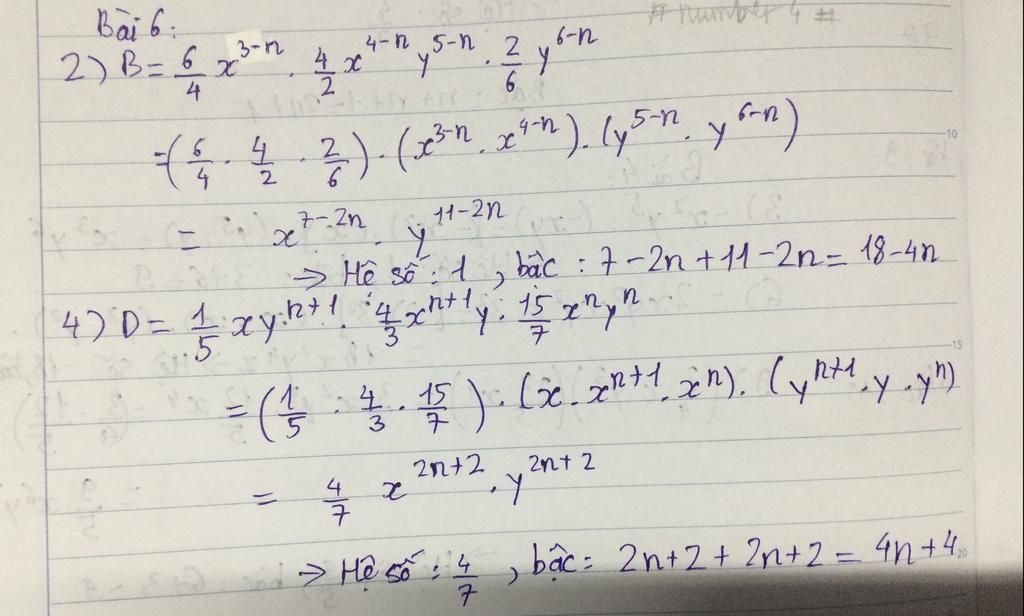 # number 4 #
Bài 6:
2) B = 6/4 x^(3-n) . 4/2 x^(4-n) y^(5-n) . 2/6 y^(6-n)
= (6/4 . 4/2 . 2/6) . (x^(3-n) . x^(4-n)) . (y^(5-n) . y^(6-n))
= x^(7-2n) . y^(11-2n)
→ Hệ số : 1 , bậc : 7 - 2n + 11 - 2n = 18 - 4n
4) D = 1/5 xy^(n+1) . 4/3 x^(n+1) y . 15/7 x^n y^n
= (1/5 . 4/3 . 15/7) . (x . x^(n+1) . x^n) . (y^(n+1) . y . y^n)
= 4/7 x^(2n+2) . y^(2n+2)
→ Hệ số : 4/7 , bậc = 2n+2 + 2n+2 = 4n+4